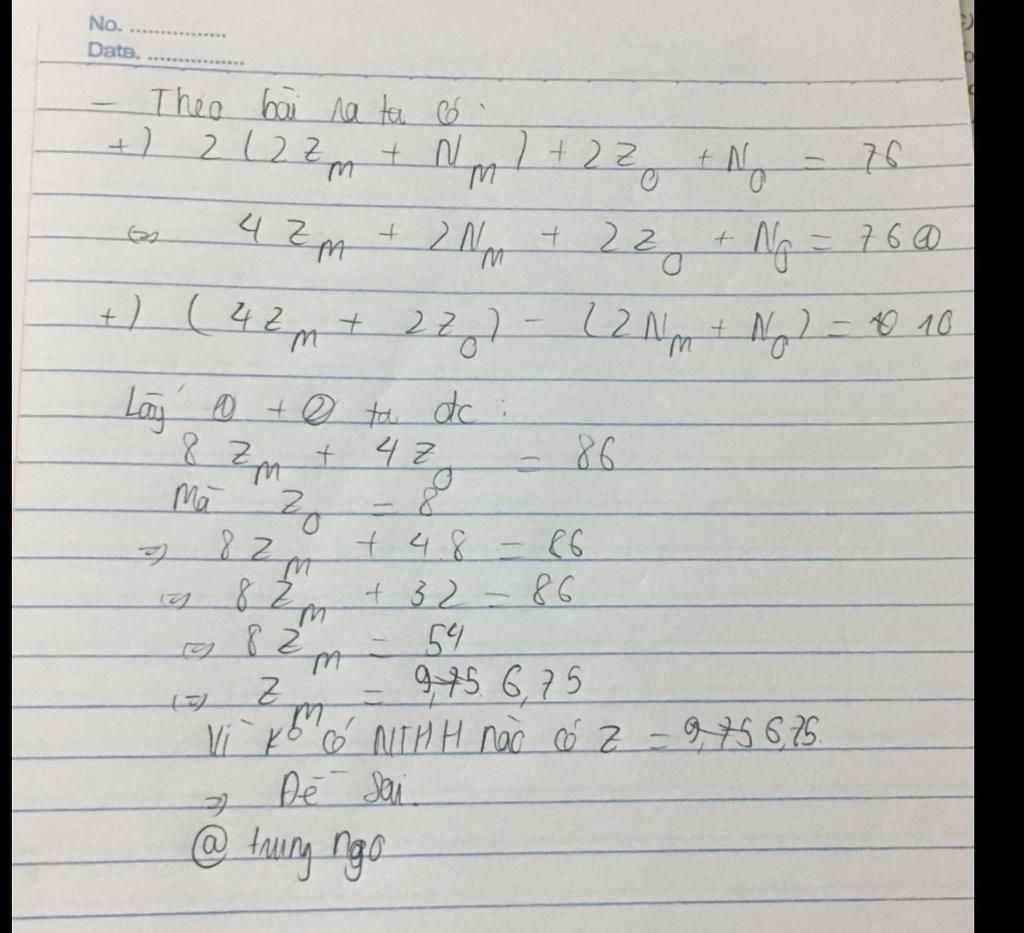 No. ................
Date. ................
- Theo bài ra ta có:
+) 2(2Z_M + N_M) + 2Z_O + N_O = 76
⇔ 4Z_M + 2N_M + 2Z_O + N_O = 76 ①
+) (4Z_M + 2Z_O) - (2N_M + N_O) = 10
Lấy ① + ② ta đc:
8Z_M + 4Z_O = 86
Mà Z_O = 8
⇒ 8Z_M + 4.8 = 86
⇔ 8Z_M + 32 = 86
⇔ 8Z_M = 54
⇔ Z_M = 9,75 6,75
Vì ko có NTHH nào có Z = 9,75 6,75.
⇒ Đề sai.
@ trung ngo